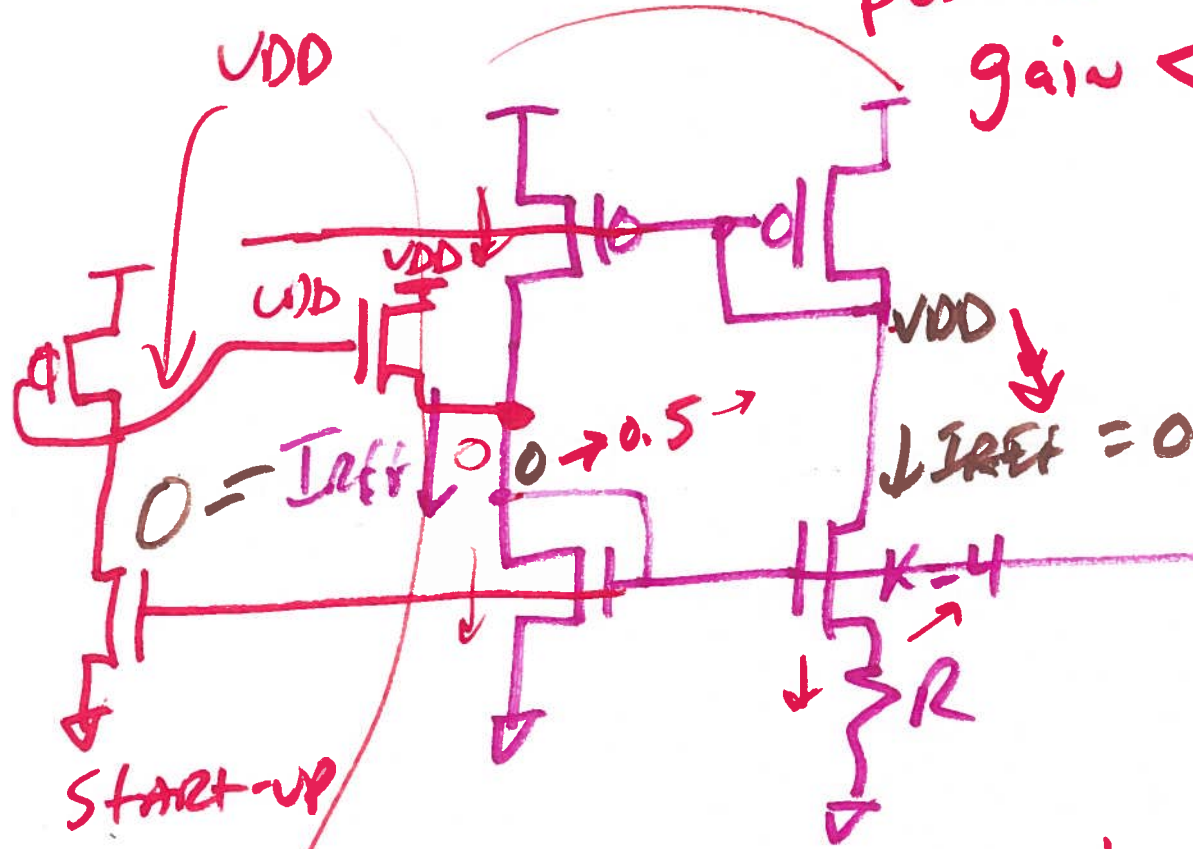 gain <
VDD
VDD
VDD
VDD
0 = IREF
0
0 → 0.5 →
↓ IREF = 0
K=4
R
START-UP